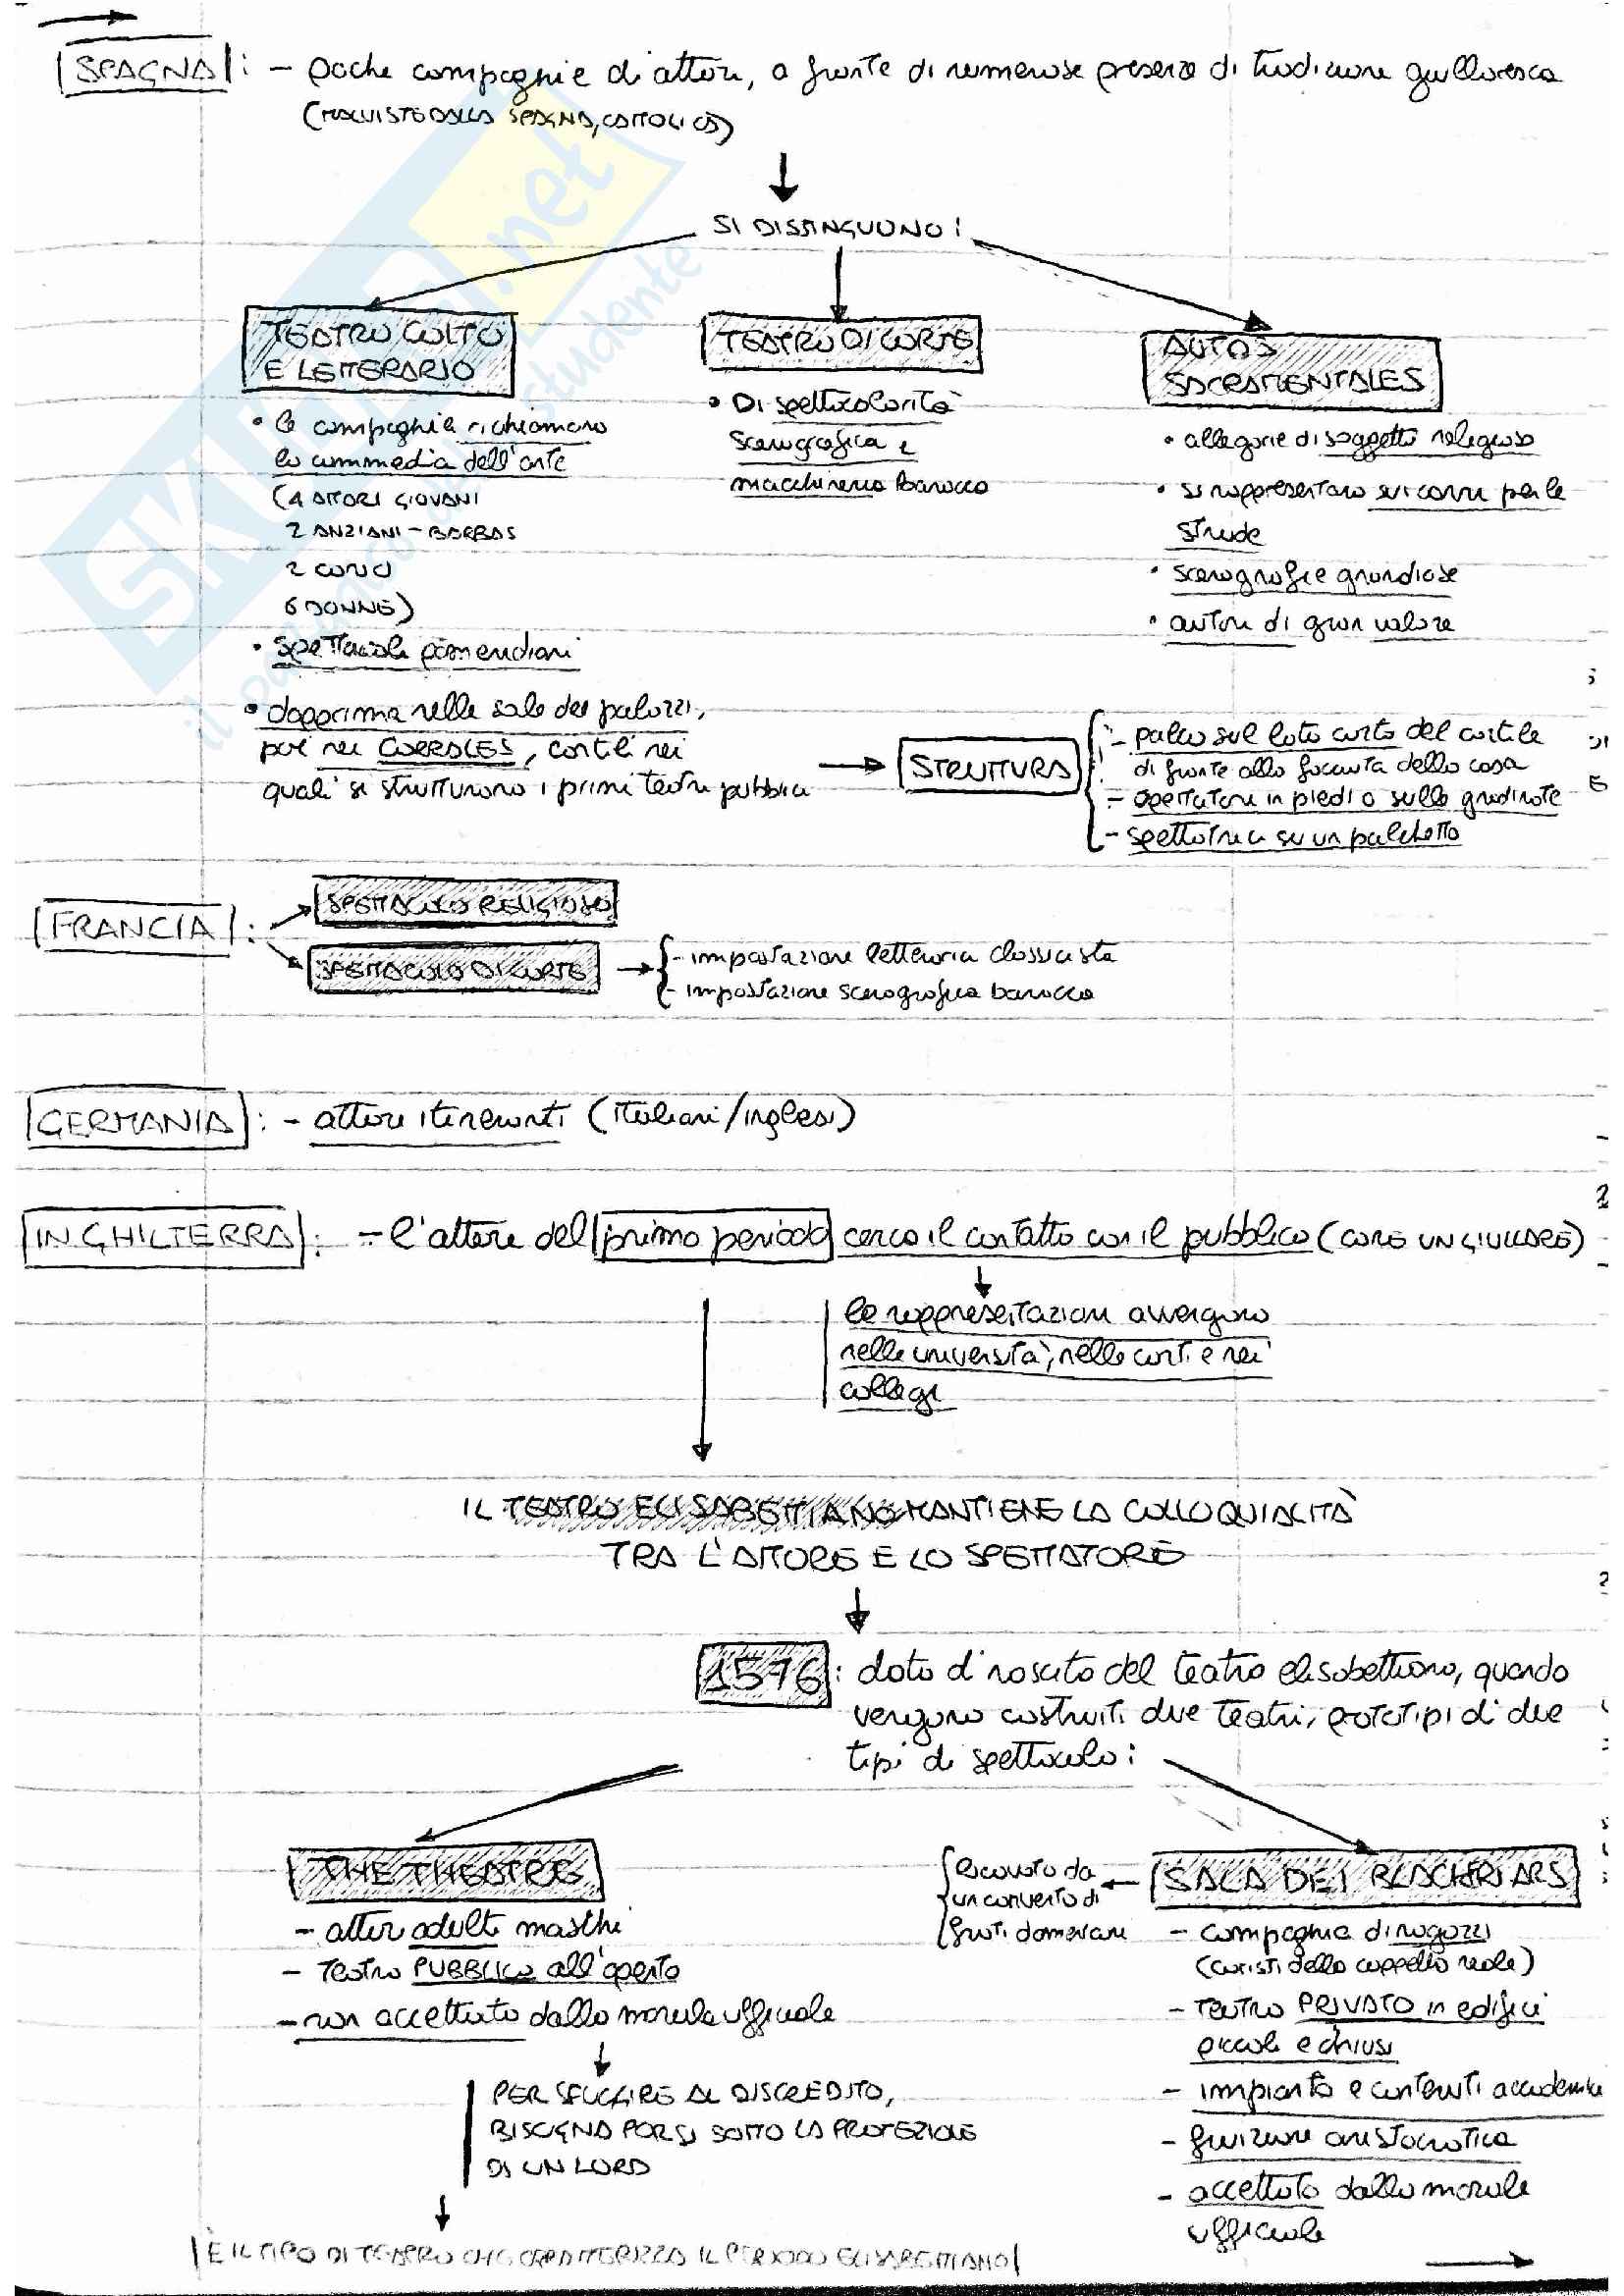 SPAGNA : - poche compagnie di attori, a fronte di numerose presenze di tradizione giullaresca
(MALVISTE DALLA SPAGNA, CATTOLICA)
SI DISTINGUONO:
TEATRO COLTO
E LETTERARIO
• le compagnie richiamano
la commedia dell'arte
(4 ATTORI GIOVANI
2 ANZIANI - BARBAS
2 COMICI
6 DONNE)
• spettacoli pomeridiani
• dapprima nelle sale dei palazzi,
poi nei CORRALES, cortili nei
quali si strutturano i primi teatri pubblici
TEATRO DI CORTE
• Di spettacolarità
scenografica e
macchineria barocca
AUTOS
SACRAMENTALES
• allegorie di soggetto religioso
• si rappresentano sui carri per le
strade
• scenografie grandiose
• autori di gran valore
STRUTTURA
- palco sul lato corto del cortile
di fronte alla facciata della casa
- spettatori in piedi o sulle gradinate
- spettatrici su un palchetto
FRANCIA :
SPETTACOLO RELIGIOSO
SPETTACOLO DI CORTE
- impostazione letteraria classicista
- impostazione scenografica barocca
GERMANIA : - attori itineranti (italiani/inglesi)
INGHILTERRA : - l'attore del primo periodo cerca il contatto con il pubblico (COME UN GIULLARE)
le rappresentazioni avvengono
nelle università, nelle corti e nei
collegi
IL TEATRO ELISABETTIANO MANTIENE LA COLLOQUIALITÀ
TRA L'ATTORE E LO SPETTATORE
1576 : data di nascita del teatro elisabettiano, quando
vengono costruiti due teatri, prototipi di due
tipi di spettacolo:
THE THEATRE
- attori adulti maschi
- Teatro PUBBLICO all'aperto
- non accettato dalla morale ufficiale
PER SFUGGIRE AL DISCREDITO,
BISOGNA PORSI SOTTO LA PROTEZIONE
DI UN LORD
È IL TIPO DI TEATRO CHE CARATTERIZZA IL PERIODO ELISABETTIANO
SALA DEI BLACKFRIARS
Ricavato da
un convento di
frati domenicani
- compagnie di ragazzi
(coristi della cappella reale)
- TEATRO PRIVATO in edifici
piccoli e chiusi
- impianto e contenuti accademici
- fruizione aristocratica
- accettato dalla morale
ufficiale
SKUOLA.net
il paradiso dello studente